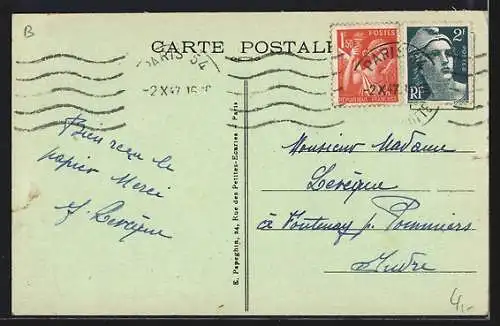 B
CARTE POSTALE
PARIS 54
-2 X 47 15
PARIS
-2 X 47
POSTES
1F50
REPUBLIQUE FRANÇAISE
2F
POSTES
RF
Bien reçu le
papier Merci
Levêque
E. Papeghin, 24, Rue des Petites-Ecuries - Paris
Monsieur Madame
Levêque
à Fontenay p. Pommiers
Indre
4,-